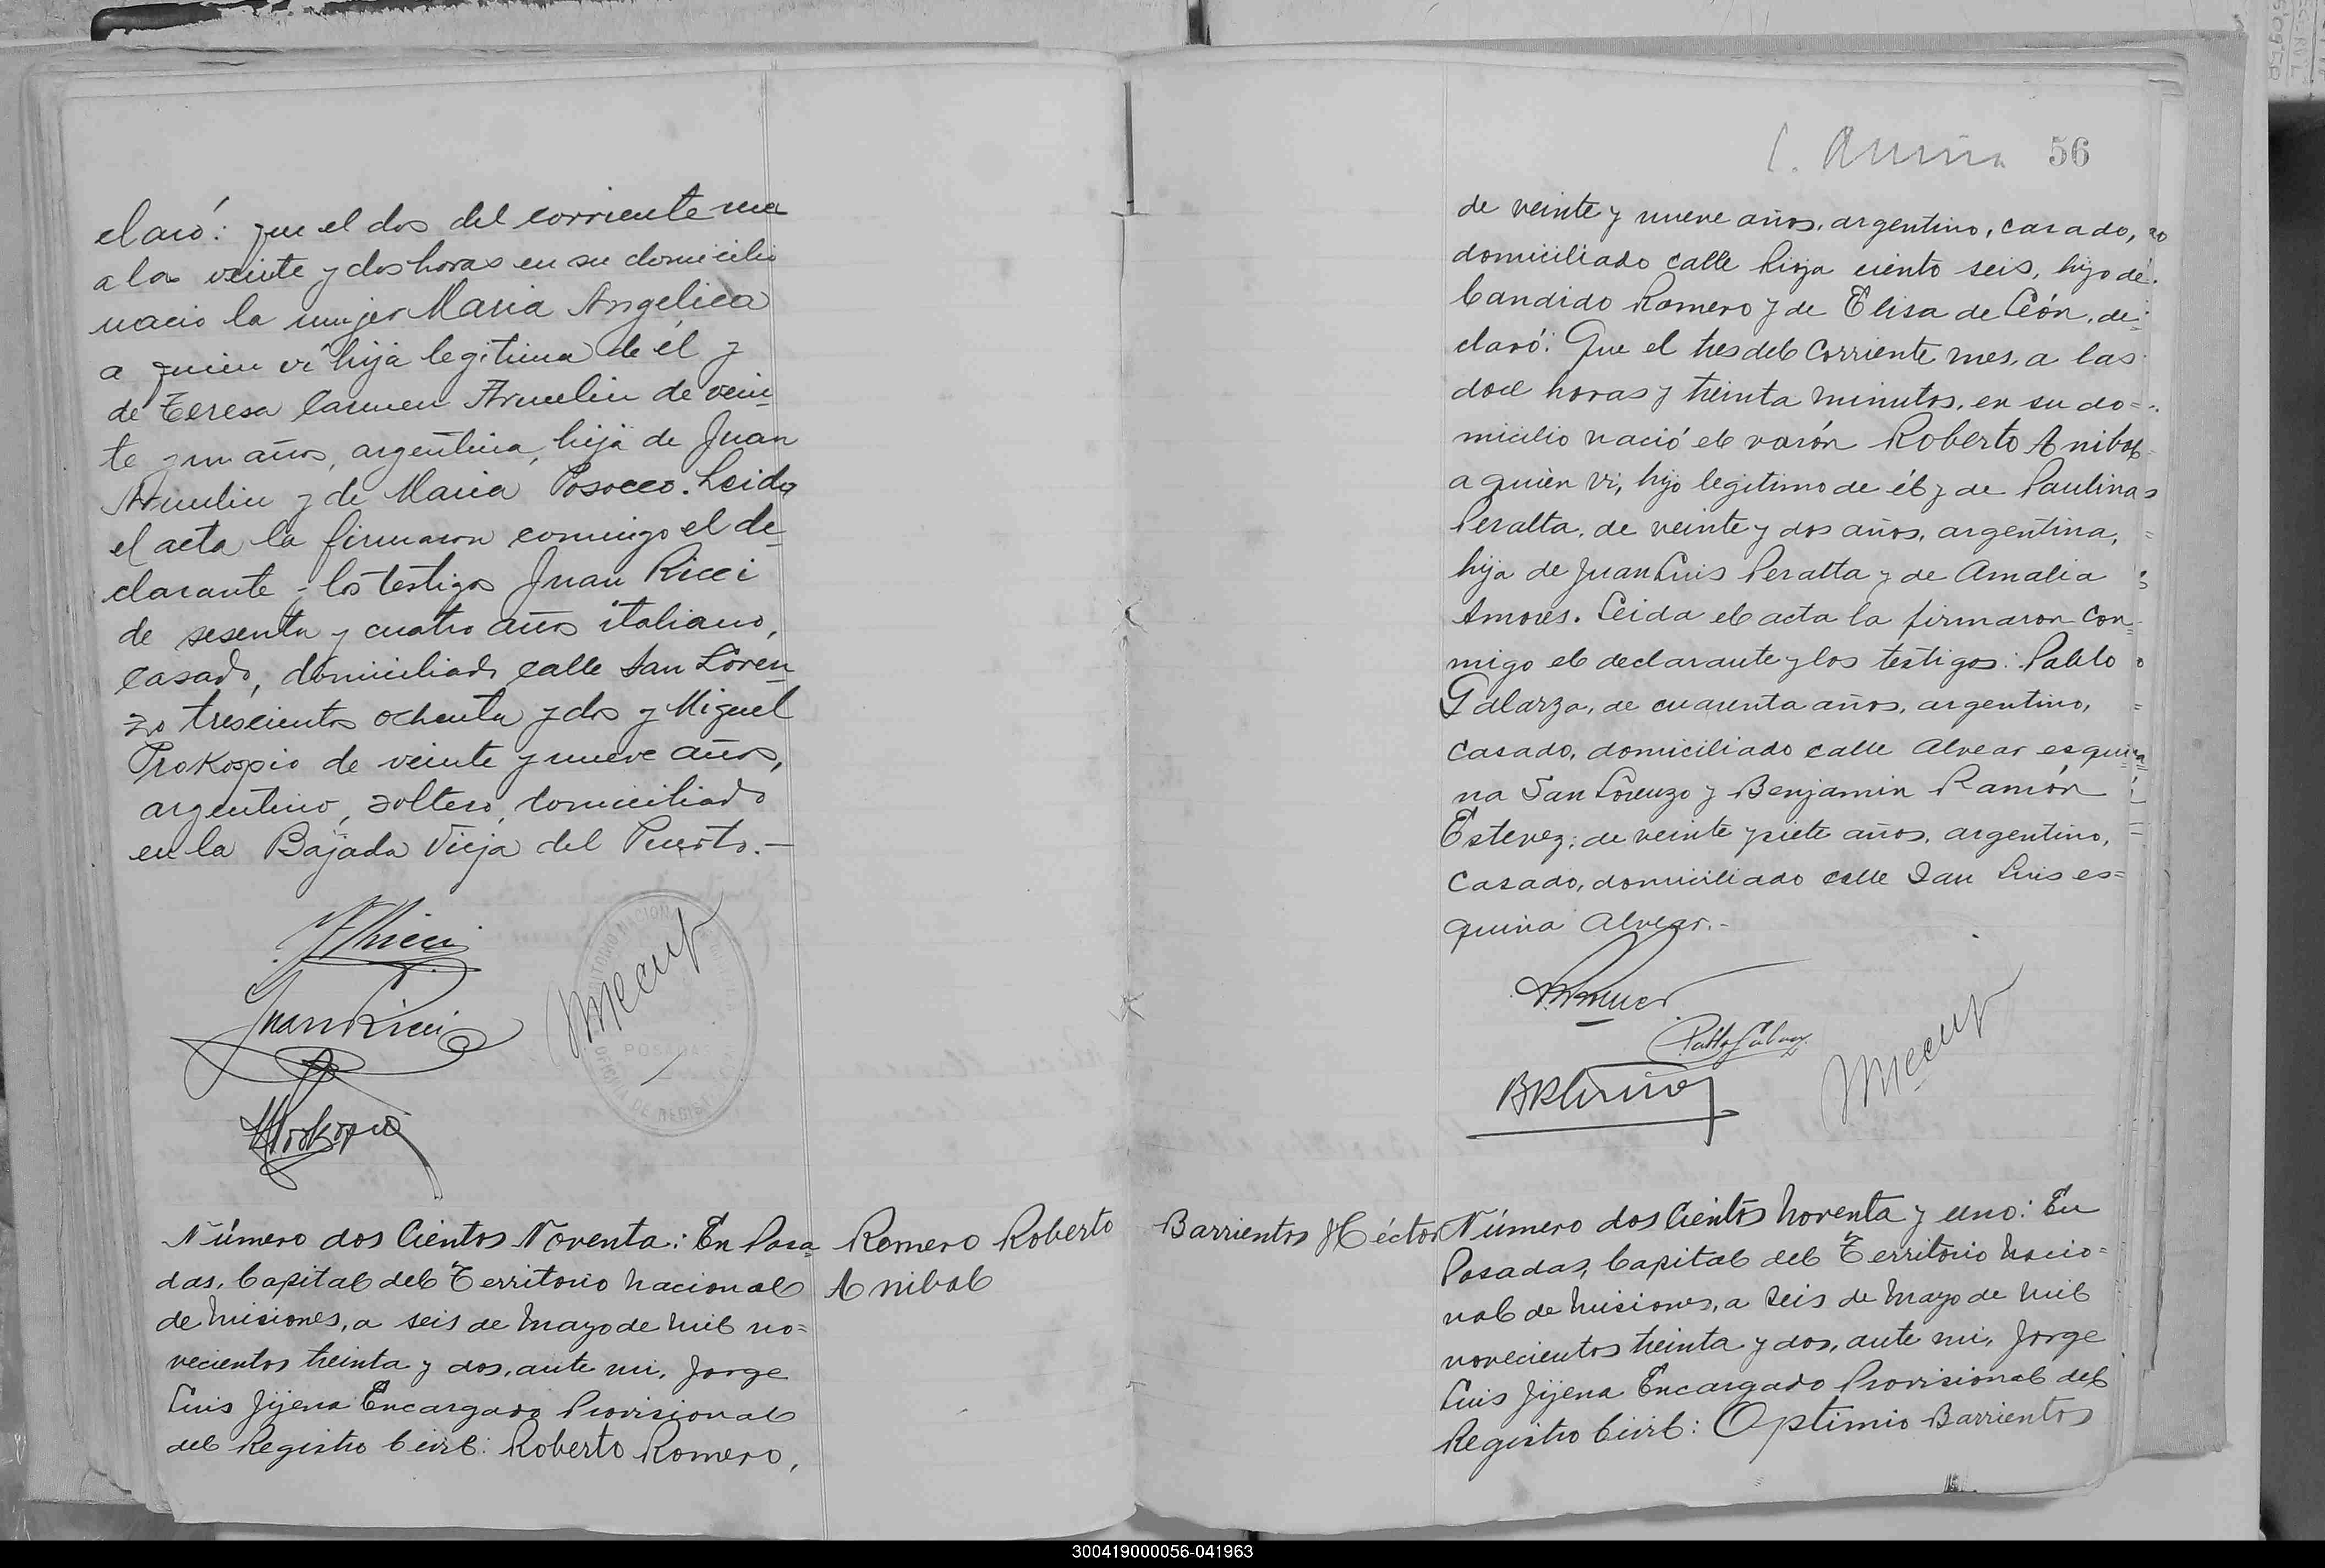 claró: que el dos del corriente mes
a las veinte y dos horas en su domicilio
nació la mujer Maria Angélica
a quien ví hija legitima de él y
de Teresa Carmen Armelin de vein-
te y un años, argentina, hija de Juan
Armelin y de Maria Posocco. Leida
el acta la firmaron conmigo el de-
clarante y los testigos Juan Ricci
de sesenta y cuatro años italiano,
casado, domiciliado calle San Loren-
zo trescientos ochenta y dos y Miguel
Prokopio de veinte y nueve años,
argentino, soltero, domiciliado
en la Bajada Vieja del Puerto.—
Juan Ricci
MProkopio
POSADAS
OFICINA DE REGISTRO
Número dos Cientos Noventa: En Posa-
das, Capital del Territorio Nacional
de Misiones, a seis de Mayo de Mil no=
vecientos treinta y dos, ante mi, Jorge
Luis Jijena Encargado Provisional
del Registro Civil: Roberto Romero,
Romero Roberto
Anibal
56
de veinte y nueve años, argentino, casado,
domiciliado calle Rioja ciento seis, hijo de
Candido Romero y de Elisa de León, de=
claró: Que el tres del corriente mes, a las
doce horas y treinta minutos, en su do=
micilio nació el varón Roberto Anibal
a quien vi, hijo legitimo de él y de Paulina
Peralta, de veinte y dos años, argentina,
hija de Juan Luis Peralta y de Amalia
Amores. Leida el acta la firmaron con=
migo el declarante y los testigos: Pablo
Galarza, de cuarenta años, argentino,
casado, domiciliado calle Alvear esqui
na San Lorenzo y Benjamin Ramón
Estevez, de veinte y siete años, argentino,
casado, domiciliado calle San Luis es=
quina Alvear.-
Barrientos Héctor
Número dos Cientos Noventa y uno: En
Posadas, Capital del Territorio Nacio=
nal de Misiones, a seis de Mayo de Mil
novecientos treinta y dos, ante mi, Jorge
Luis Jijena Encargado Provisional del
Registro Civil: Optimio Barrientos
300419000056-041963